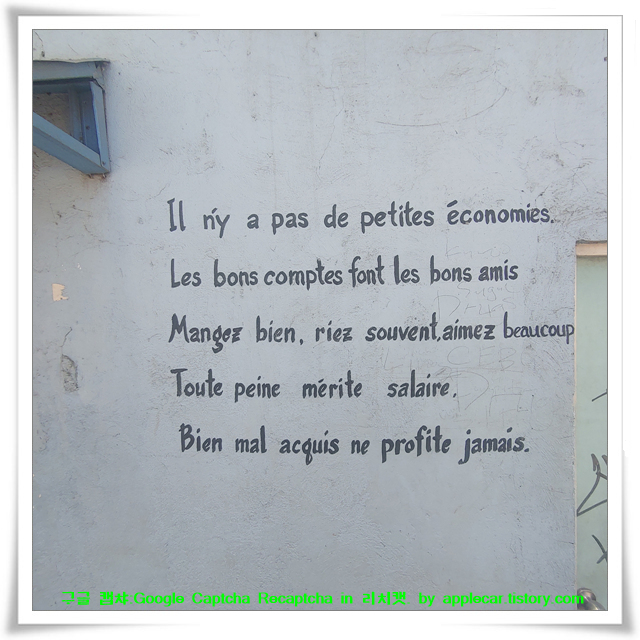 Il n'y a pas de petites économies.
Les bons comptes font les bons amis
Mangez bien, riez souvent, aimez beaucoup
Toute peine mérite salaire.
Bien mal acquis ne profite jamais.
구글 캡챠:Google Captcha Recaptcha in 리치캣 by applecar.tistory.com